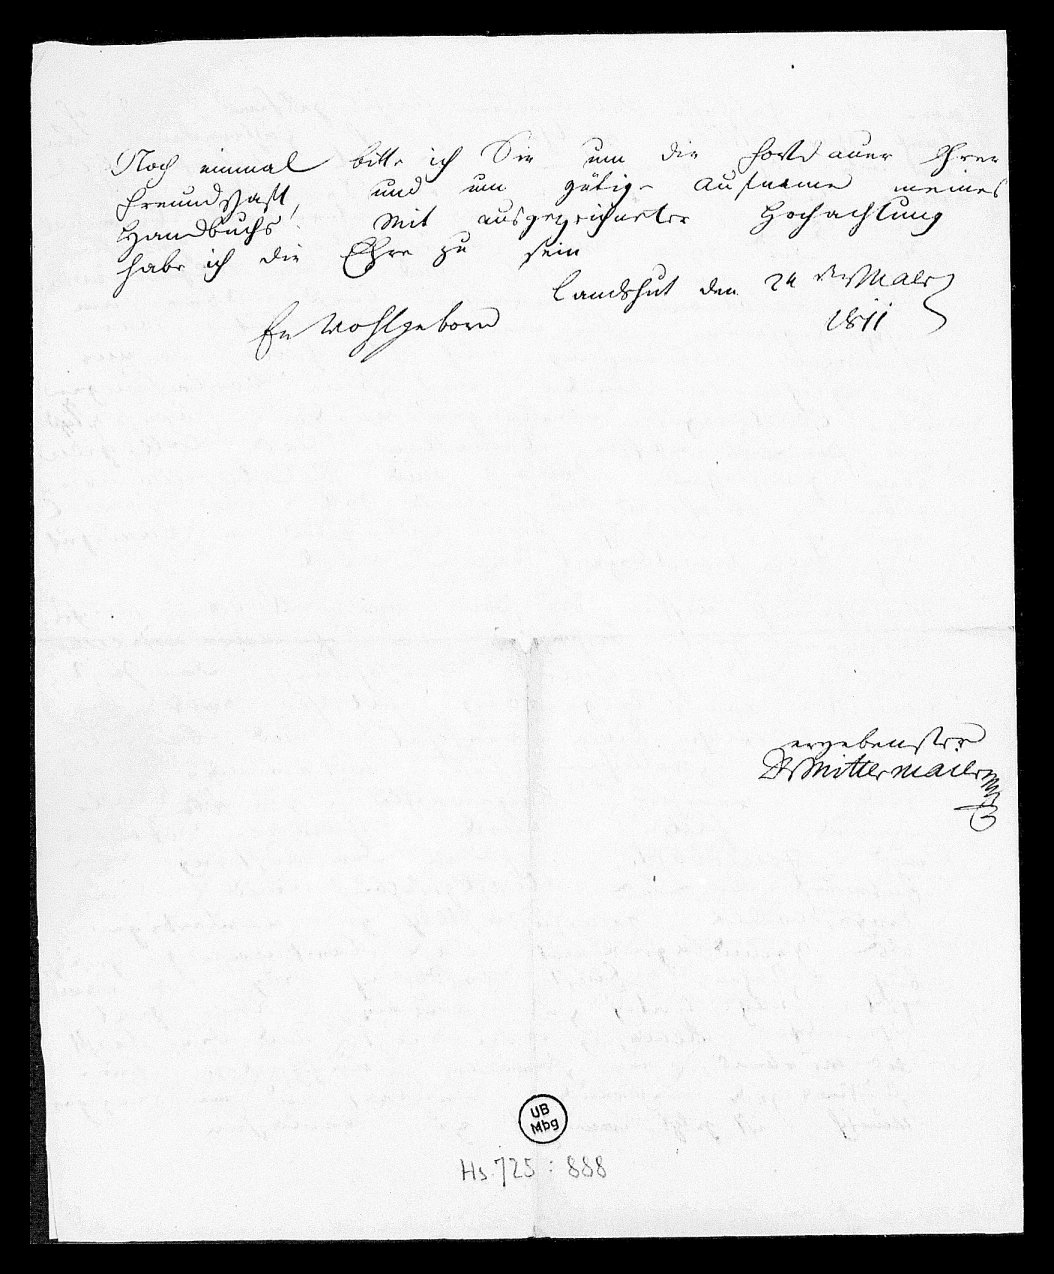 Noch einmal bitte ich Sie um die Fortdauer Ihrer
Freundschaft, und um gütige Aufname meines
Handbuchs. Mit ausgezeichneter Hochachtung
habe ich die Ehre zu sein
Landshut den 24
1811
Eu Wohlgeborn
ergebenster
Dr Mittermaier
UB
Mbg
Hs. 725 : 888